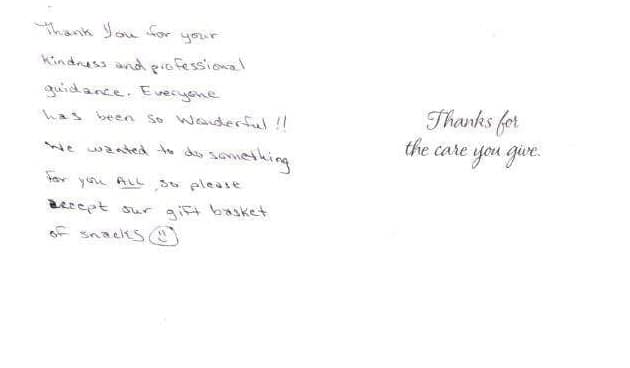 Thank You for your
Kindness and professional
guidance. Everyone
has been so Wonderful !!
We wanted to do something
For you ALL, so please
accept our gift basket
of snacks
Thanks for
the care you give.